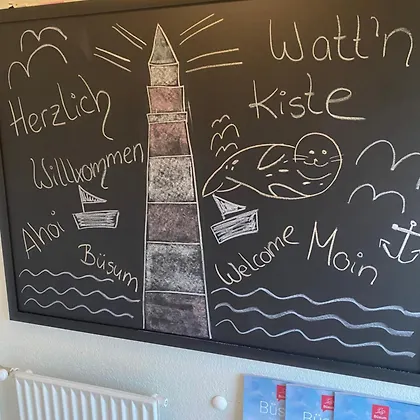 Watt'n
Kiste
Herzlich
Willkommen
Ahoi
Büsum
Welcome
Moin
Büs
Bü
Büs